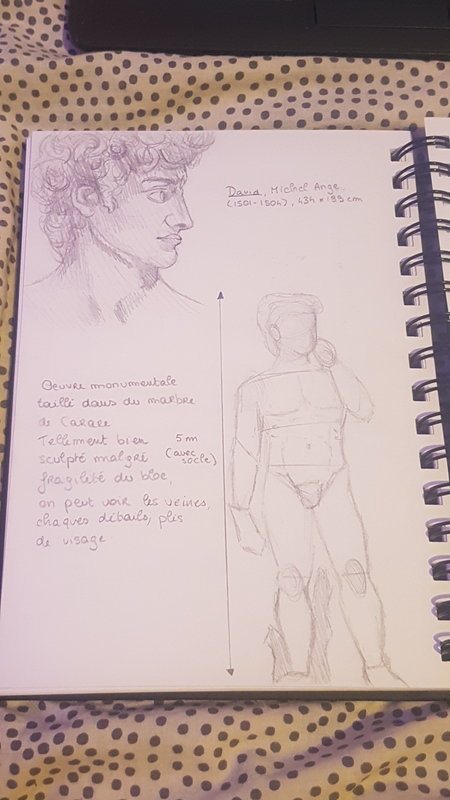 David, Michel Ange
(1501-1504), 434 x 199 cm
Oeuvre monumentale
taillé dans du marbre
de Carare
Tellement bien
sculpté malgré
fragilité du bloc,
on peut voir les veines,
chaques détails, plis
de visage
5 m
(avec
socle)